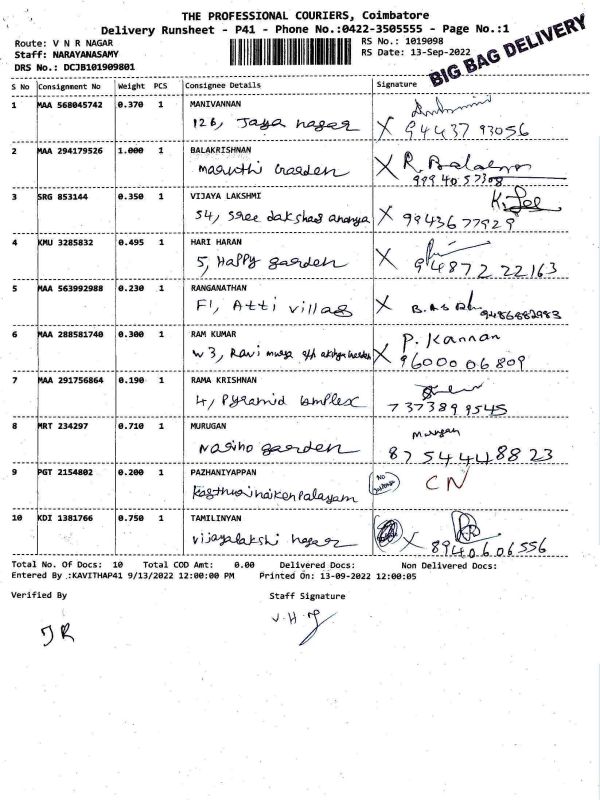 THE PROFESSIONAL COURIERS, Coimbatore
Delivery Runsheet - P41 - Phone No.:0422-3505555 - Page No.:1
Route: V N R NAGAR RS No.: 1019098
Staff: NARAYANASAMY RS Date: 13-Sep-2022
DRS No.: DCJB101909801
BIG BAG DELIVERY
S No Consignment No Weight PCS Consignee Details Signature
1 MAA 568045742 0.370 1 MANIVANNAN
126, Jaya nagar X 94437 93056
2 MAA 294179526 1.000 1 BALAKRISHNAN
maruthi Garden X R. Bala
9994057308
3 SRG 853144 0.350 1 VIJAYA LAKSHMI
54, Sree dakshas ananya X 9943677929
4 KMU 3285832 0.495 1 HARI HARAN
5, Happy garden X 94872 22163
5 MAA 563992988 0.230 1 RANGANATHAN
F1, Atti villas X 9486882983
6 MAA 288581740 0.300 1 RAM KUMAR P. Kannan
W3, Ravi X 9600006809
7 MAA 291756864 0.190 1 RAMA KRISHNAN
4, Pyramid Complex 7373899545
8 MRT 234297 0.710 1 MURUGAN Murugan
garden 8754448823
9 PGT 2154802 0.200 1 PAZHANIYAPPAN
Kasthurinaikenpalayam No CN
10 KDI 1381766 0.750 1 TAMILINYAN
vijayalakshi nagar X 8940606556
Total No. Of Docs: 10 Total COD Amt: 0.00 Delivered Docs: Non Delivered Docs:
Entered By :KAVITHAP41 9/13/2022 12:00:00 PM Printed On: 13-09-2022 12:00:05
Verified By Staff Signature
JR V.H.